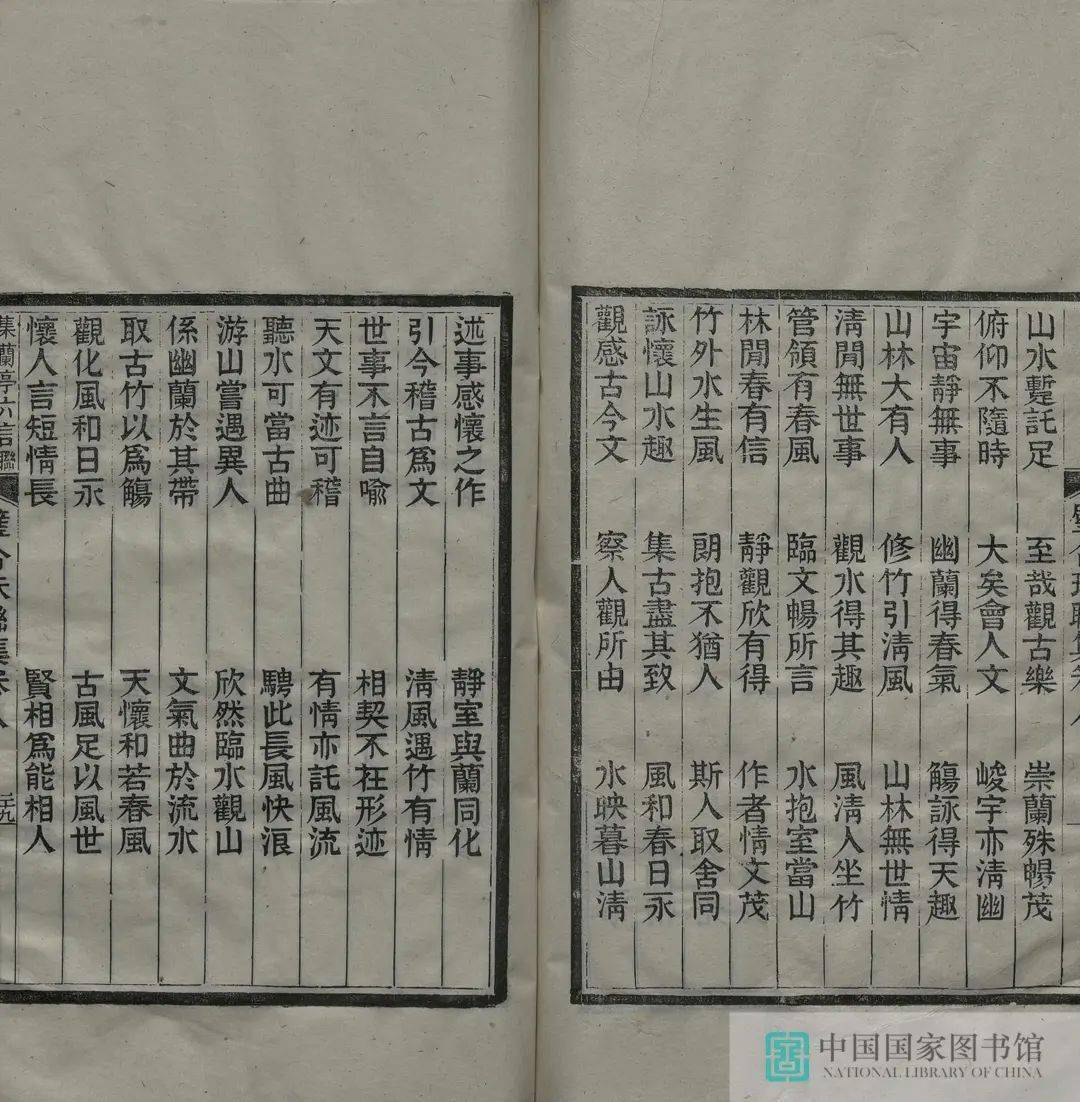 山水蹔託足 至哉觀古樂 崇蘭殊暢茂
俯仰不隨時 大矣會人文 峻宇亦淸幽
宇宙靜無事 幽蘭得春氣 觴詠得天趣
山林大有人 修竹引淸風 山林無世情
淸閒無世事 觀水得其趣 風淸人坐竹
管領有春風 臨文暢所言 水抱室當山
林閒春有信 靜觀欣有得 作者情文茂
竹外水生風 朗抱不猶人 斯人取舍同
詠懷山水趣 集古盡其致 風和春日永
觀感古今文 察人觀所由 水映暮山淸
述事感懷之作 靜室與蘭同化
引今稽古爲文 淸風遇竹有情
世事不言自喻 相契不在形迹
天文有迹可稽 有情亦託風流
聽水可當古曲 騁此長風快浪
游山嘗遇異人 欣然臨水觀山
係幽蘭於其帶 文氣曲於流水
取古竹以爲觴 天懷和若春風
觀化風和日永 古風足以風世
懷人言短情長 賢相爲能相人
集蘭亭六言聯
中国国家图书馆
NATIONAL LIBRARY OF CHINA